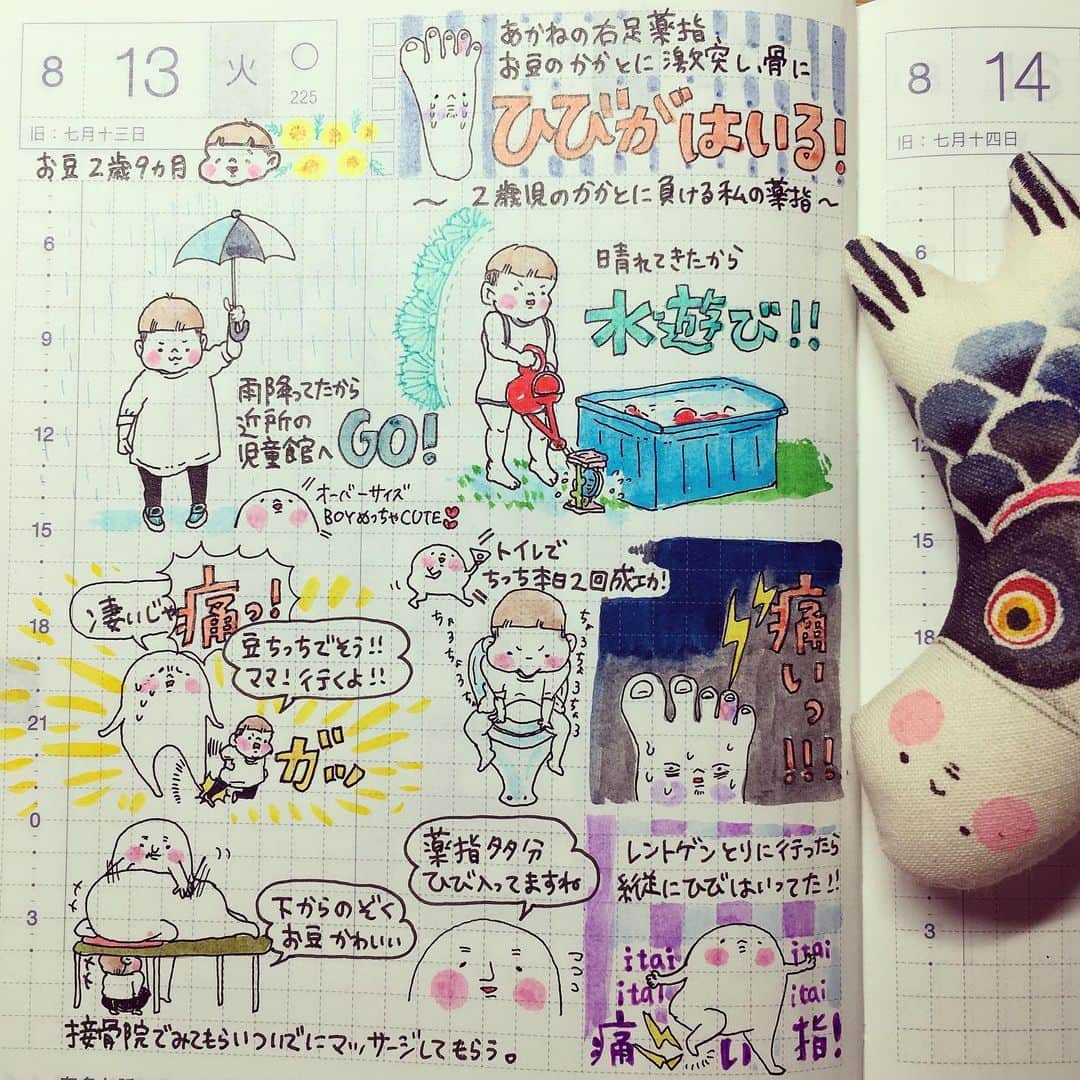 8 13 火 225
旧：七月十三日
お豆2歳9カ月
あかねの右足薬指、
お豆のかかとに激突し、骨に
ひびがはいる!
〜 2歳児のかかとに負ける私の薬指〜
6
9
12
15
18
21
0
3
雨降ってたから
近所の
児童館へ GO!
オーバーサイズ
BOYめっちゃCUTE
晴れてきたから
水遊び!!
凄いじゃ
痛っ!
豆ちっちでそう!!
ママ!行くよ!!
ガッ
トイレで
ちっち本日2回成功!
ちょろちょろちょろ
ちょろちょろちょろ
痛いっ!!!
下からのぞく
お豆かわいい
接骨院でみてもらいついでにマッサージしてもらう。
薬指多分
ひび入ってますね
レントゲンとりに行ったら
縦にひびはいってた!!
itai itai
itai itai
痛い指!
8 14
旧：七月十四日
6
9
15
18
3